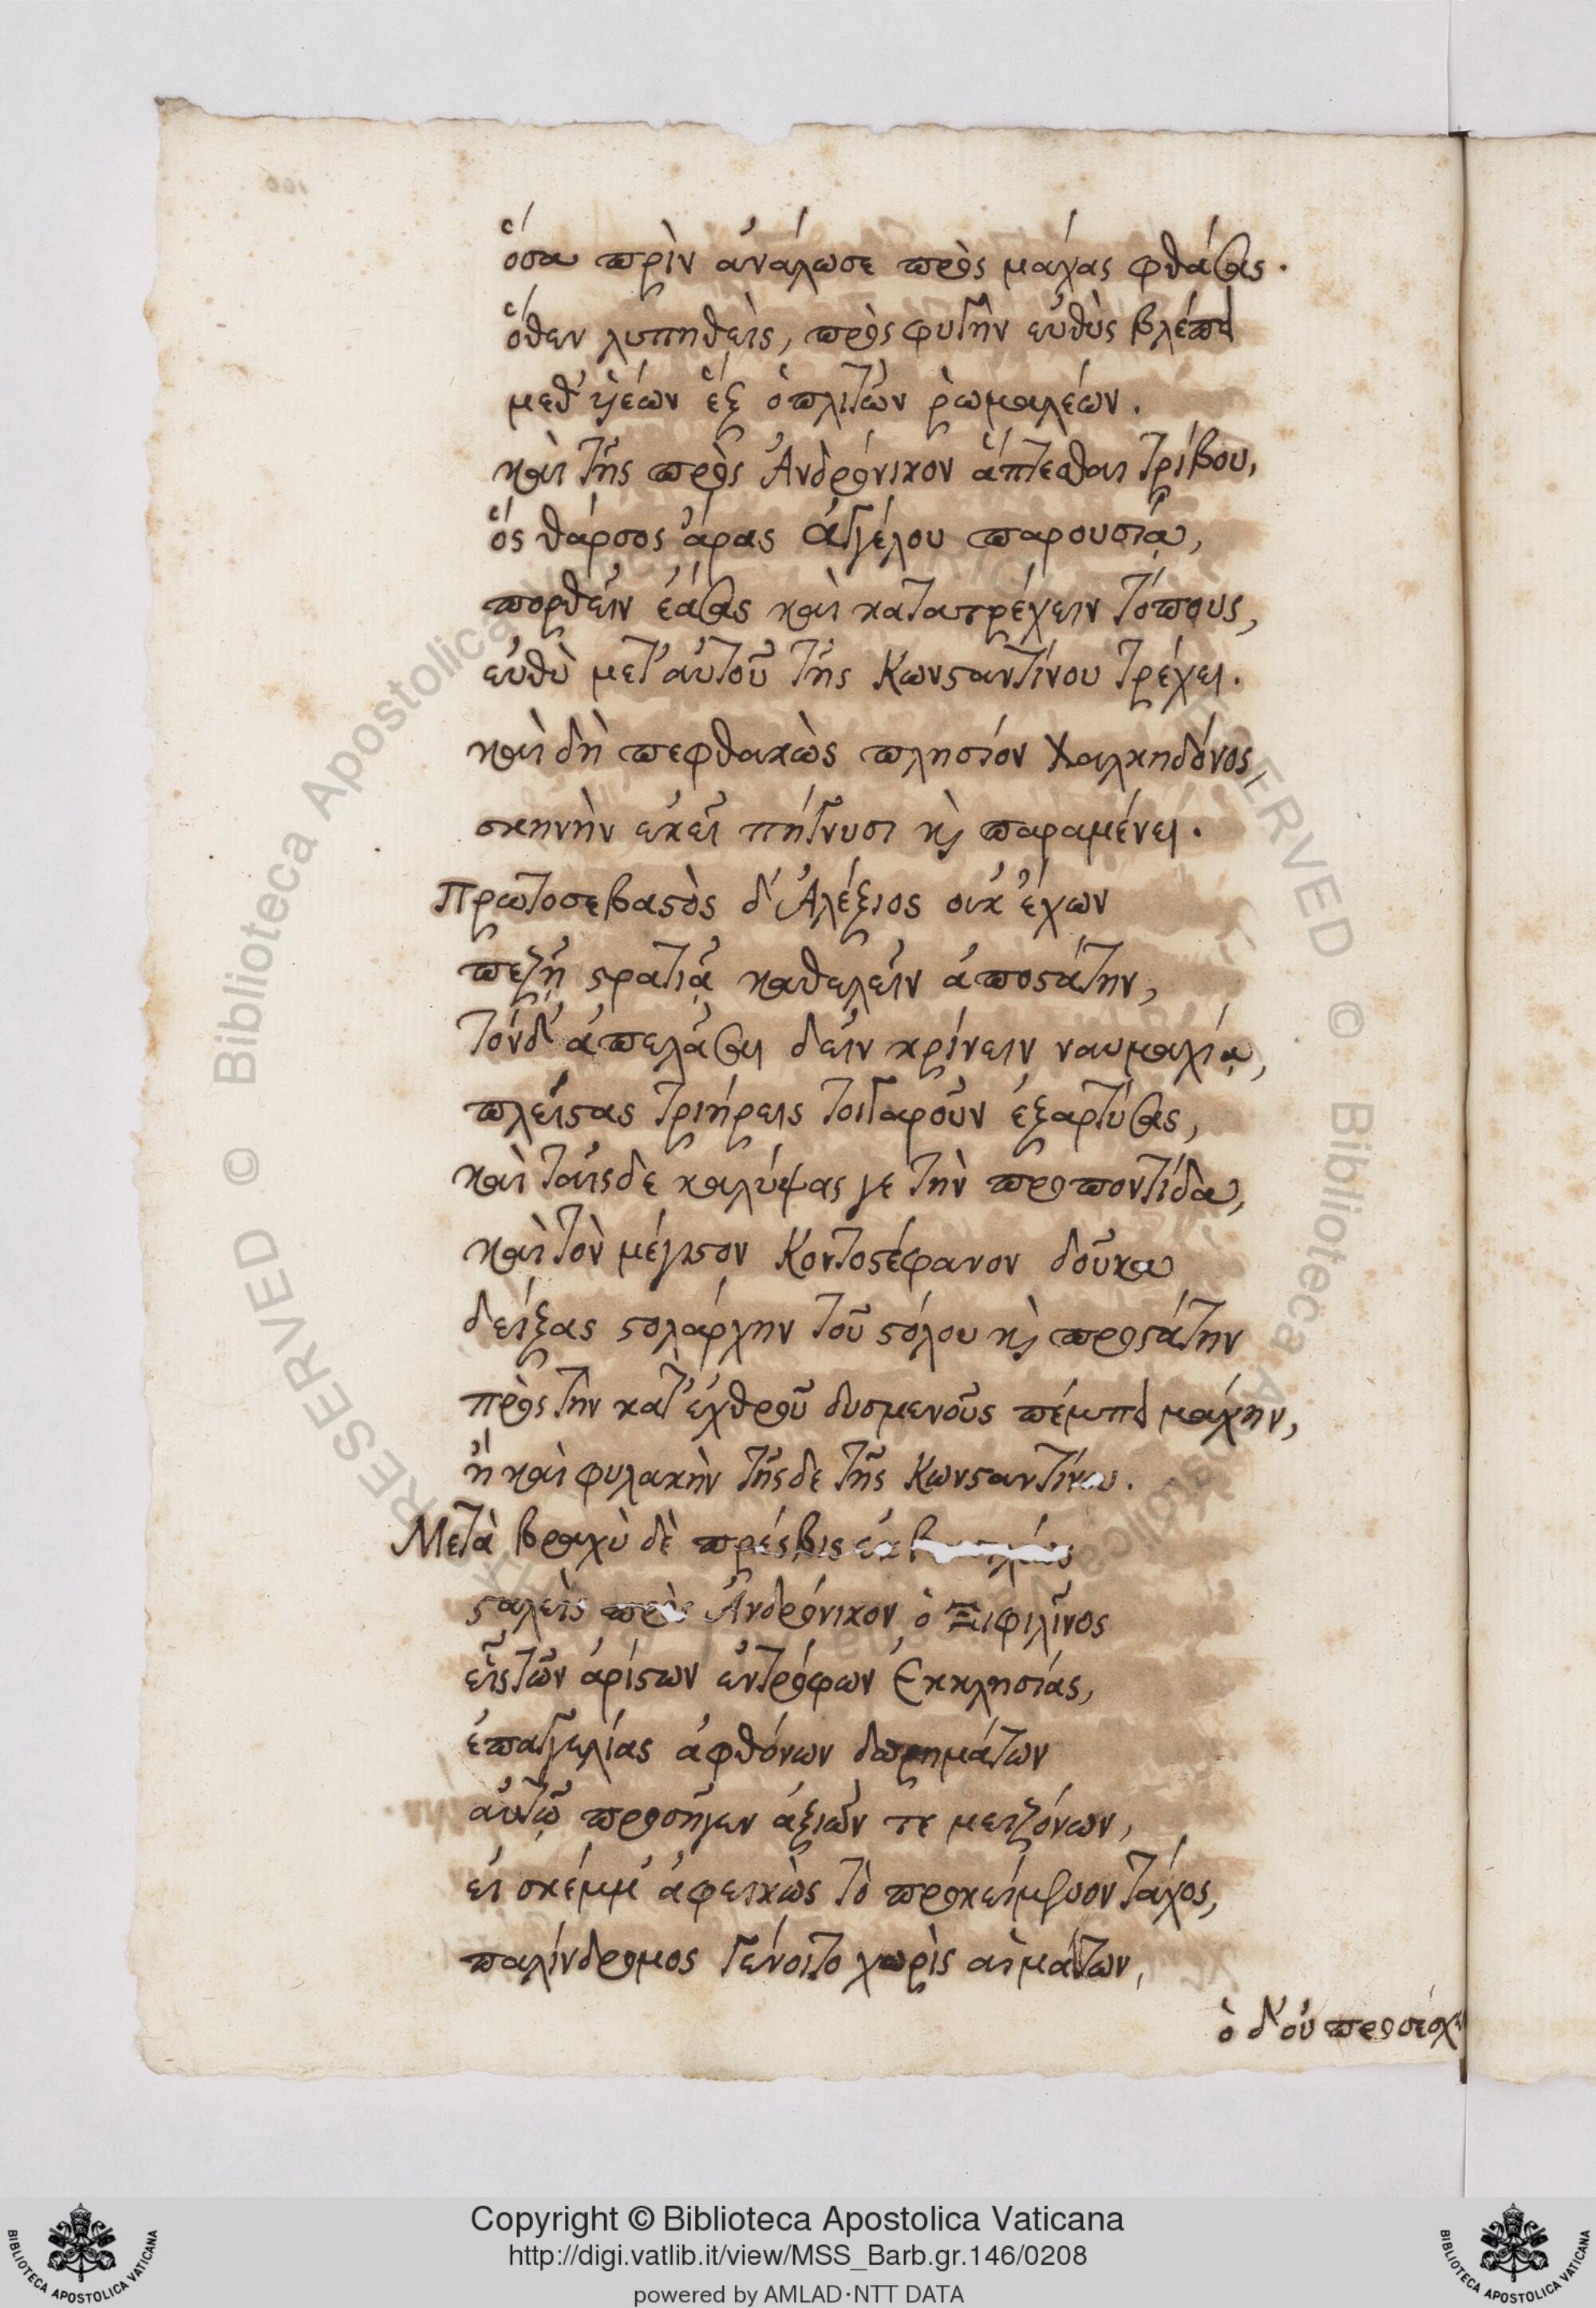 ὅσα πρὶν ἀνάλωσε πρὸς μάχας φθάσας.
ὅθεν λυπηθεὶς, πρὸς φυγὴν εὐθὺς βλέπει
μεθ' υἱέων ἓξ ὁπλιτῶν ῥωμαλέων.
καὶ τῆς πρὸς Ἀνδρόνικον ἅπτεσθαι τρίβου,
ὃς θάρσος ἄρας ἀγγέλου παρουσίᾳ,
πορθεῖν ἐάσας καὶ κατατρέχειν τόπους,
εὐθὺ μετ' αὐτοῦ τῆς Κωνσταντίνου τρέχει.
καὶ δὴ πεφθακὼς πλησίον Χαλκηδόνος,
σκηνὴν ἐκεῖ πήγνυσι καὶ παραμένει.
Πρωτοσεβαστὸς δ' Ἀλέξιος οὐκ ἔχων
πεζῇ στρατιᾷ καθελεῖν ἀποστάτην,
τόνδ' ἀπελάσαι δεῖν κρίνειν ναυμαχίᾳ,
πλείστας τριήρεις τοιγαροῦν ἐξαρτύσας,
καὶ ταῖσδε καλύψας γε τὴν προποντίδα,
καὶ τὸν μέγιστον Κοντοστέφανον δοῦκα
δείξας στολάρχην τοῦ στόλου καὶ προστάτην
πρὸς τὴν κατ' ἐχθροῦ δυσμενοῦς πέμπει μάχην,
ἢ καὶ φυλακὴν τῆσδε τῆς Κωνσταντίνου.
Μετὰ βραχὺ δὲ πρέσβις ἐκ βασιλέως
σταλεὶς πρὸς Ἀνδρόνικον ὁ Ξιφιλῖνος
εἷς τῶν ἀρίστων ἐντρόφων Ἐκκλησίας,
ἐπαγγελίας ἀφθόνων δωρημάτων
αὐτῷ προσῆγεν ἀξιῶν τε μειζόνων,
εἰ σκέμμ' ἀφεικὼς τὸ προκείμενον τάχος,
παλίνδρομος γένοιτο χωρὶς αἱμάτων,
ὁ δ' οὐ προσέσχε
Copyright © Biblioteca Apostolica Vaticana
http://digi.vatlib.it/view/MSS_Barb.gr.146/0208
powered by AMLAD·NTT DATA